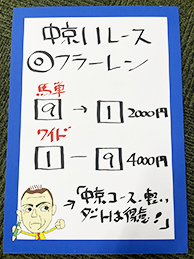 中京11レース
◎フラーレン
馬車
9 → 1 2000円
ワイド
1 － 9 4000円
→「中京コース、軽い
ダートは得意！」